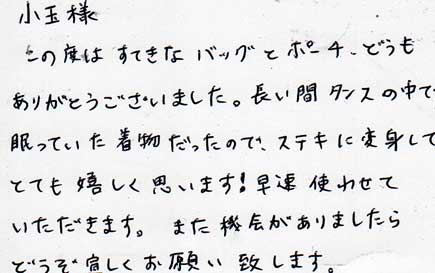 小玉様
この度は すてきな バッグと ポーチ、どうも
ありがとうございました。長い間タンスの中で
眠っていた着物だったので、ステキに変身して
とても嬉しく思います!早速 使わせて
いただきます。 また機会がありましたら
どうぞ宜しくお願い致します。